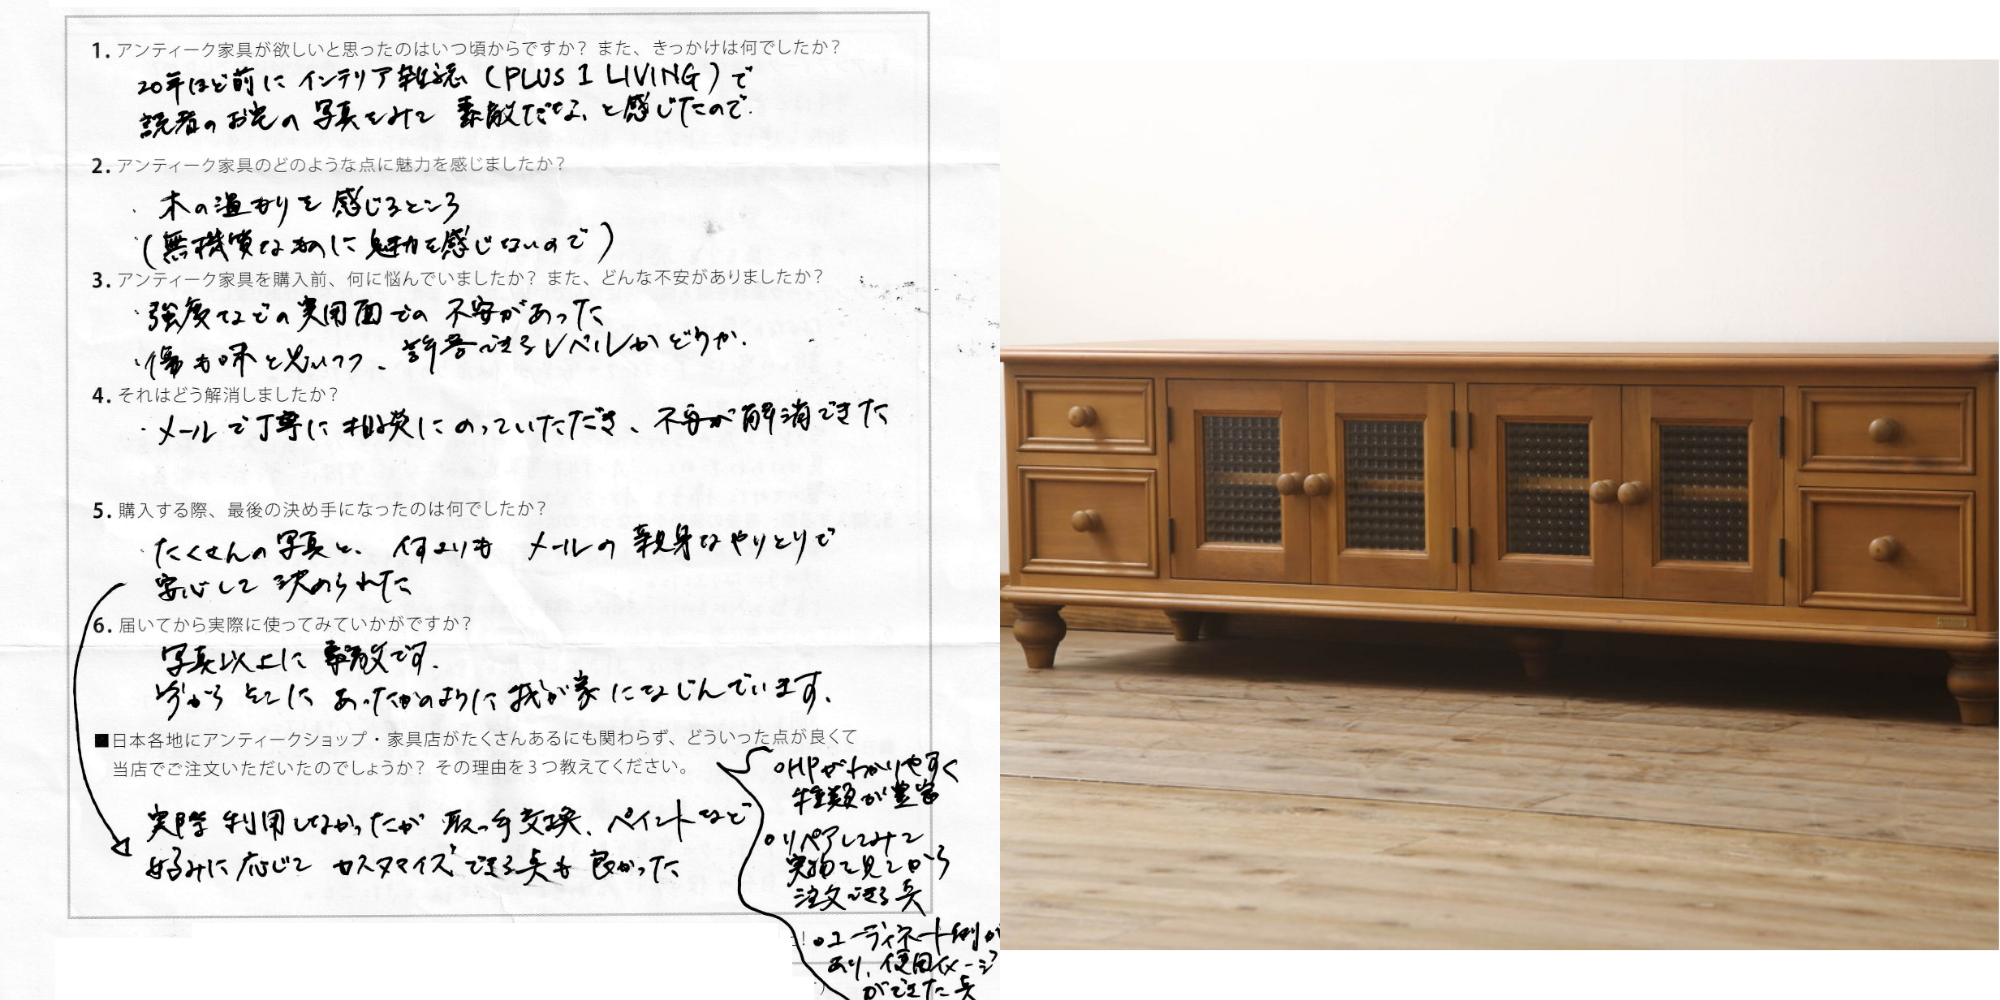 1. アンティーク家具が欲しいと思ったのはいつ頃からですか？ また、きっかけは何でしたか？
20年ほど前に インテリア雑誌 (PLUS 1 LIVING) で
読者のお宅の 写真をみて 素敵だな、と感じたので.
2. アンティーク家具のどのような点に魅力を感じましたか？
・木の温もりを 感じるところ
・(無機質なものに 魅力を感じないので)
3. アンティーク家具を購入前、何に悩んでいましたか？ また、どんな不安がありましたか？
・強度などの実用面での 不安があった
・傷も味と思いつつ、許容できるレベルかどうか.
4. それはどう解消しましたか？
・メールで丁寧に相談にのっていただき、不安が解消できた
5. 購入する際、最後の決め手になったのは何でしたか？
・たくさんの写真と、何よりも メールの親身なやりとりで
安心して 決められた
6. 届いてから実際に使ってみていかがですか？
写真以上に 素敵です.
昔から そこに あったかのように我が家になじんでいます.
■日本各地にアンティークショップ・家具店がたくさんあるにも関わらず、どういった点が良くて
当店でご注文いただいたのでしょうか？ その理由を3つ教えてください。
実際 利用しなかったが 取っ手交換、ペイントなど
好みに応じて カスタマイズできる点も 良かった
○HPがわかりやすく
種類が豊富
○リペアしてみて
実物を見てから
注文できる点
○コーディネート例が
あり、使用イメージ
ができた点